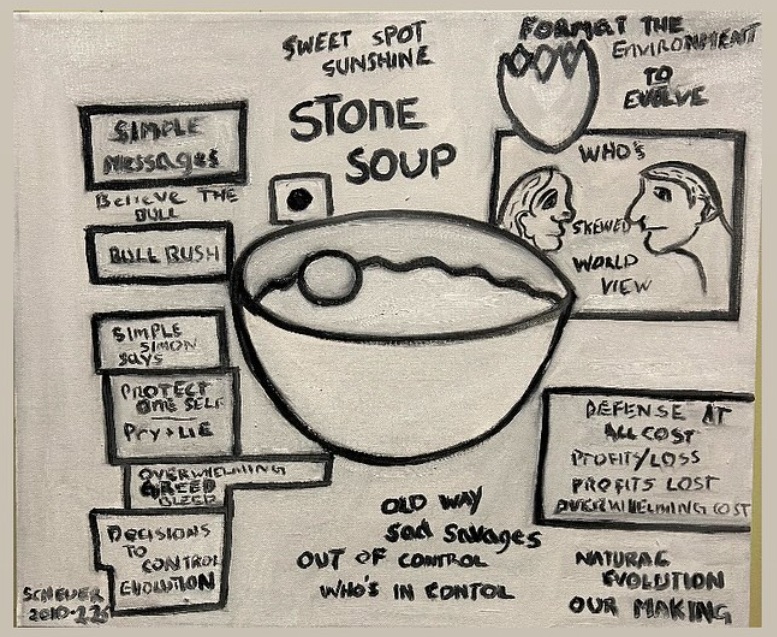 SWEET SPOT
SUNSHINE
STONE
SOUP
FORMAT THE
ENVIRONMENT
TO
EVOLVE
SIMPLE
MESSAGES
BELIEVE THE
BULL
BULL RUSH
SIMPLE
SIMON
SAYS
PROTECT
ONE SELF
PRY + LIE
OVERWHELMING
GREED
BLEED
DECISIONS
TO
CONTROL
EVOLUTION
WHO'S
SKEWED
WORLD
VIEW
DEFENSE AT
ALL COST
PROFITS/LOSS
PROFITS LOST
OVERWHELMING COST
OLD WAY
Sad Savages
OUT OF CONTROL
WHO'S IN CONTOL
NATURAL
EVOLUTION
OUR MAKING
SCHEUER